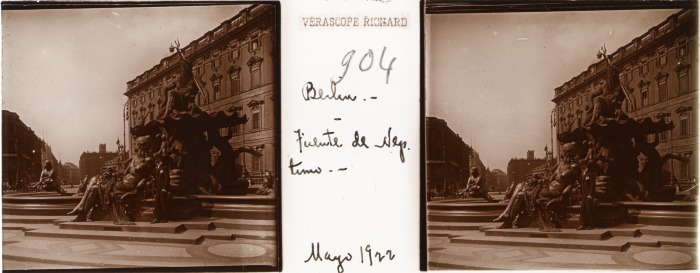 VERASCOPE RICHARD
904
Berlin.-
-
Fuente de Nep.
tuno.-
Mayo 1922